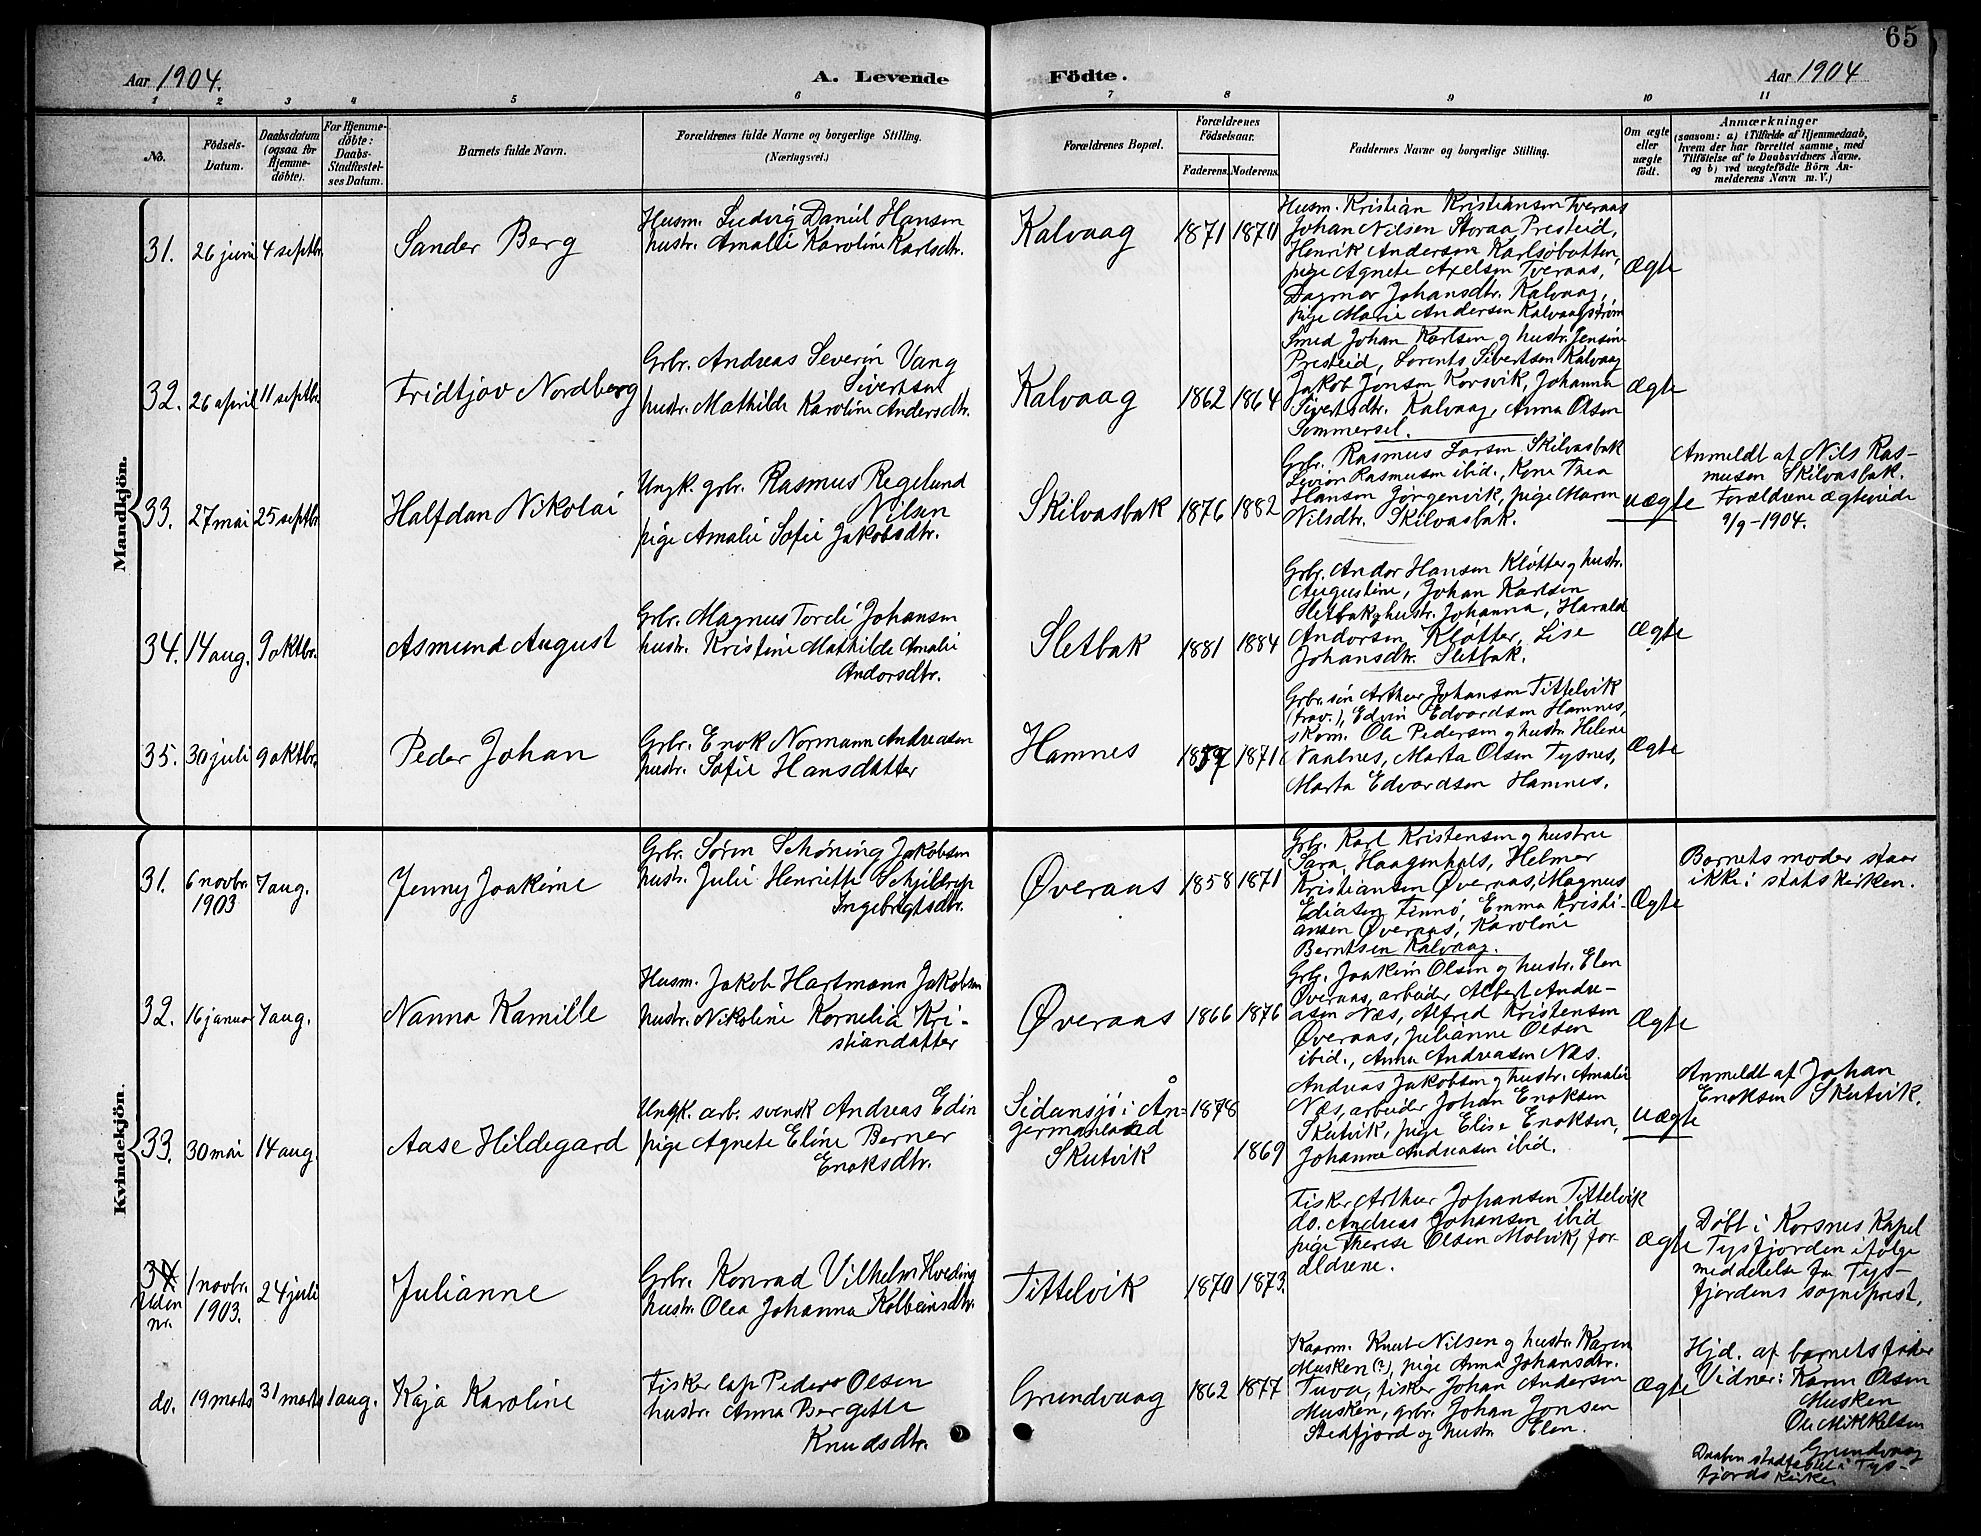 65
Aar 1904.
A. Levende Födte.
Aar 1904
1 2 3 4 5 6 7 8 9 10 11
No.
Födsels-Datum.
Daabsdatum (ogsaa for Hjemme-döbte).
For Hjemme-döbte: Daabs-Stadfæstel-ses Datum.
Barnets fulde Navn.
Forældrenes fulde Navne og borgerlige Stilling.
(Næringsvei.)
Forældrenes Bopæl.
Forældrenes Födselsaar.
Faderens. Moderens.
Faddernes Navne og borgerlige Stilling.
Om ægte eller uægte födt.
Anmærkninger
(saasom: a) i Tilfælde af Hjemmedaab,
hvem der har forrettet samme, med
Tilföielse af to Daabsvidners Navne,
og b) ved uægtefödte Börn An-
melderens Navn m. V.)
Mandkjön.
31. 26 juni 4 septbr. Sander Berg
Husm. Ludvig Daniel Hansen
hustr. Amalie Karoline Karlsdtr.
Kalvaag 1871 1870
Husm. Kristian Kristiansen Tveraas
Johan Nilsen Storaa, Presteid,
Henrik Andersen Karlsøbotten,
pige Agnete Axelsen Tveraas,
Dagmar Johansdtr. Kalvaag,
pige Marie Andersen Kalvaagstrøm
Ægte
32. 26 april 11 septbr. Fridtjov Nordberg
Grbr. Andreas Severin Vang
Sivertsen
hustr. Mathilde Karoline Andersdtr.
Kalvaag 1862 1864
Smed Johan Karlsen og hustr. Jensine
Presteid, Lorents Sivertsen Kalvaag
Jakob Jonsen Korsvik, Johanna
Sivertsdtr. Kalvaag, Anna Olsen
Sommersel.
Ægte
33. 27 mai 25 septbr. Halfdan Nikolai
Ungk. grbr. Rasmus Regelund
Nilsen
pige Amalie Sofie Jakobsdtr.
Skilvasbak 1876 1882
Grbr. Rasmus Larsen Skilvasbak
Rasmusen ibid., Kone Thea
Hansen Jørgenvik, pige Maren
Nilsdtr. Skilvasbak.
uægte
Anmeldt af Nils Ras-
musen Skilvasbak.
Forældrene ægteviede
9/9-1904.
34. 14 aug. 9 oktbr. Asmund August
Grbr. Magnus Tordi Johansen
hustr. Kristine Mathilde Amalie
Andorsdtr.
Sletbak 1881 1884
Grbr. Andor Hansen Kløtter og hustr.
Augustine, Johan Karlsen
Sletbak og hustr. Johanna, Harald
Andorsen Kløtter, Lise
Johansdtr. Sletbak.
Ægte
35. 30 juli 9 oktbr. Peder Johan
Grbr. Enok Normann Andreasen
hustr. Sofie Hansdatter
Hamnes 1871
Grbr. søn Arthur Johansen Tittelvik
(frav.), Edvin Edvardsen Hamnes,
skom. Ole Pedersen og hustr. Helene
Naalnes, Marta Olsen Tysnes,
Marta Edvardsen Hamnes.
Ægte
Kvindekjön.
31. 6 novbr. 1903 7 aug. Jenny Joakime
Grbr. Søren Schøning Jakobsen
hustr. Julie Henriette Schjeltrup
Ingebrigtsdtr.
Øveraas 1858 1871
Grbr. Karl Kristensen og hustru
Sara, Haagenhals, Helmer
Kristiansen Øveraas, Magnus
Ediasen Finnø, Emma Kristi-
ansen Øveraas, Karoline
Berntsen Kalvaag.
Ægte
Barnets moder staar
ikke i statskirken.
32. 16 januar 7 aug. Nanna Kamille
Husm. Jakob Hartmann Jakobsen
hustr. Nikoline Kornelia Kri-
stiandatter
Øveraas 1866 1876
Grbr. Joakim Olsen og hustr. Elen
Øveraas, arbeider Albert Andre-
asen Næs, Alfred Kristensen
Øveraas, Julianne Olsen
ibid., Anna Andreasen Næs.
Ægte
33. 30 mai 14 aug. Aase Hildegard
Ungk. arb. svensk Andreas Edin
pige Agnete Eline Berner
Enoksdtr.
Sidansjø i Ån-
germanland
Skutvik
1878 1869
Andreas Jakobsen og hustr. Amalie
Næs, arbeider Johan Enoksen
Skutvik, pige Elise Enoksen,
Johanne Andreasen ibid.
uægte
Anmeldt af Johan
Enoksen Skutvik.
34
Uden nr. 1 novbr. 1903. 24 juli Julianne
Grbr. Konrad Vilhelm Hveding
hustr. Olea Johanna Kolbeinsdtr.
Tittelvik 1870 1873.
Fisker Arthur Johansen Tittelvik
do. Andreas Johansen ibid
pige Therese Olsen Molvik, for-
ældrene.
Ægte
Døbt i Korsnes Kapel
Tysfjorden ifølge
meddelelse fra Tys-
fjordens sogneprest.
do. 19 marts 31 marts 1 aug. Kaja Karoline
Fisker lap Peder Olsen
hustr. Anna Bergette
Knudsdtr.
Grundvaag 1862 1877
Kaarm. Knut Nilsen og hustr. Karen
Musken (?), pige Anna Johansdtr.
Tuva, fisker Johan Andersen
Musken, grbr. Johan Jonsen
Stedfjord og hustr. Elen.
Ægte
Hjd. af barnets fader
Vidner: Karen Olsen
Musken
Ole Mikkelsen
Grundvaag
Daaben stadfæstet i Tys-
fjords kirke.